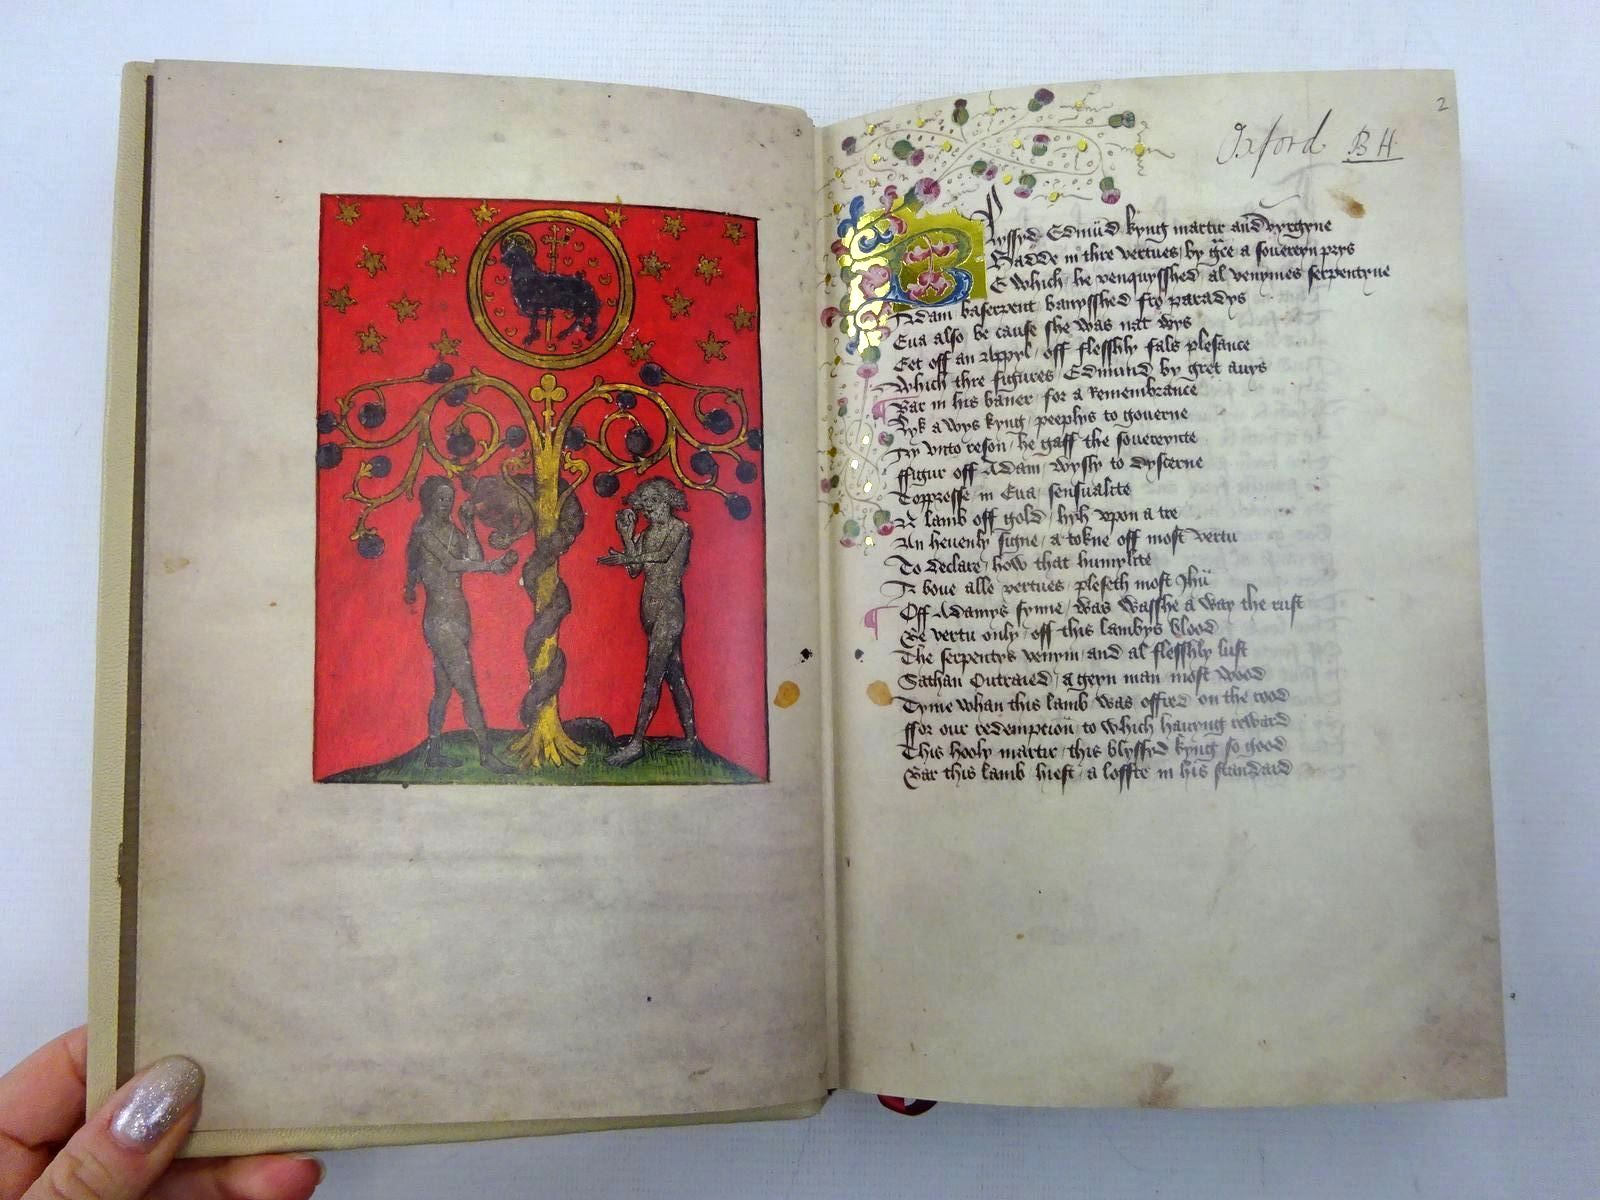 2
Oxford B H
Blyssyd Edmund kyng martir and vyrgyne
Hadde in thre vertues by grce a souereyn prys
Be Which he venquysshed al venymes serpentyne
Adam baserpent banysshed fro paradys
Eua also be cause she was nat wys
Eet off an Appyl off flesshly fals plesance
Which thre figures Edmund by gret auys
Bar in his baner for a Remembrance
Lyk a wys kyng peeplys to gouerne
Ay vnto reson he gaff the souereynte
ffigur off Adam wysly to dyscerne
Toppresse in Eua sensualite
A lamb off gold hyh vpon a tre
An heuenly signe a tokne off most vertu
To declare how that humylite
A boue alle vertues pleseth most Jhu
Off Adamys synne was wasshe a way the rust
Be vertu only off this lambys blood
The serpentys venym and al flesshly lust
Sathan Outraied a geyn man most wood
Tyme whan this lamb was offred on the rood
ffor our redempcioun to which hauyng reward
This hooly martir this blyssyd kyng so good
Bar this lamb hiest a loffte in his standard